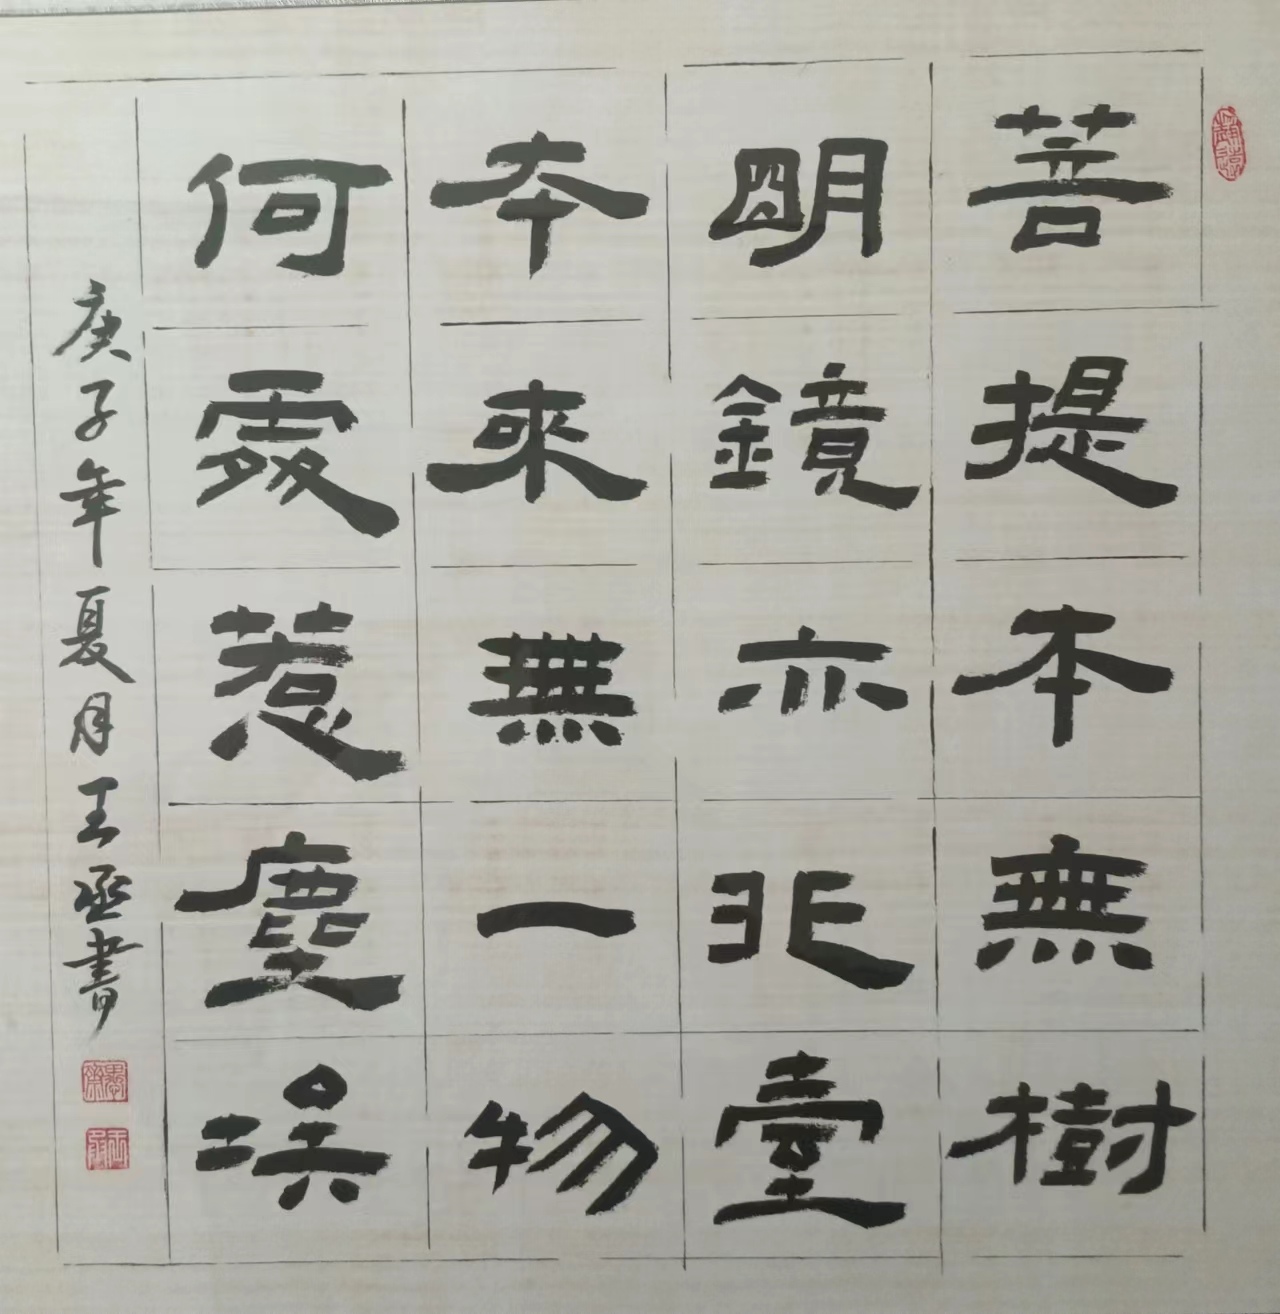 菩提本無樹
明鏡亦非臺
本來無一物
何處惹塵埃
庚子年夏月王丞書